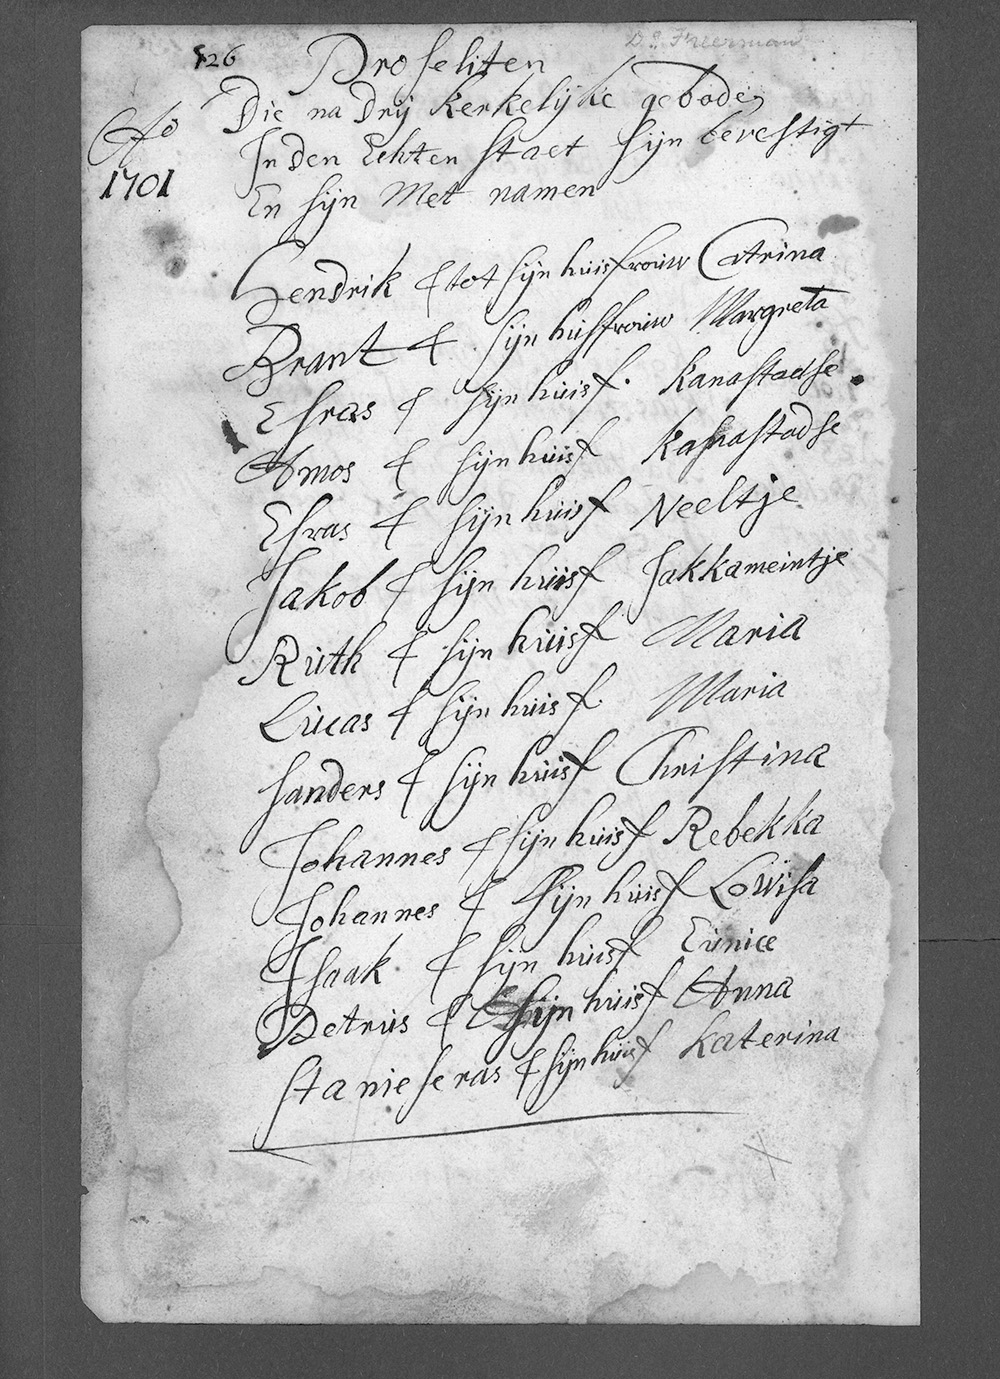 126
Ds. Freerman
Proseliten
Die na drij kerkelijke gebode
Ao
In den Echten staet sijn bevestigt
1701
En sijn Met namen
Hendrik & tot sijn huisfrouw Catrina
Brant & sijn huisfrouw Margreta
Esras & sijn huisf. Kanastadse
Amos & sijn huisf Kasnastadse
Esras & sijn huisf Neeltje
Jakob & sijn huisf Jakkameintje
Ruth & sijn huisf Maria
Lucas & sijn huisf. Maria
Sanders & sijn huisf Christina
Johannes & sijn huisf Rebekka
Johannes & sijn huisf Lowisa
Isaak & sijn huisf Eunice
Petrus & sijn huisf Anna
Stanieseras & sijn huisf Katerina